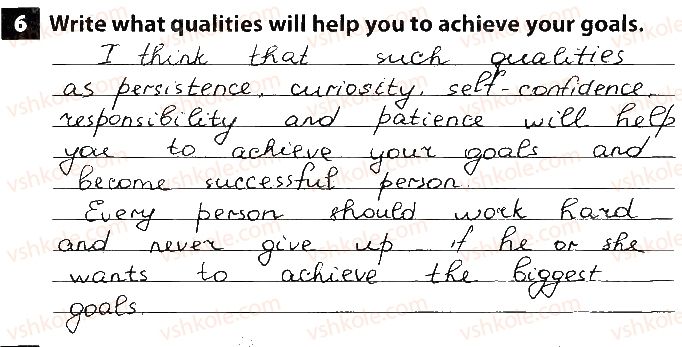 6 Write what qualities will help you to achieve your goals.
I think that such qualities
as persistence, curiosity, self-confidence,
responsibility and patience will help
you to achieve your goals and
become successful person.
Every person should work hard
and never give up if he or she
wants to achieve the biggest
goals.
vshkole.com